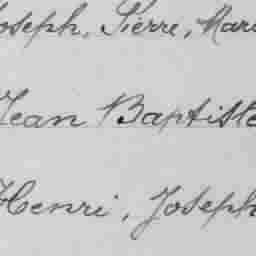 Joseph, Pierre, Mari
Jean Baptiste
Henri, Joseph